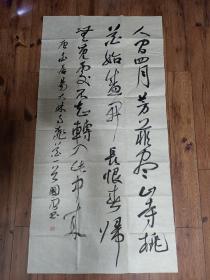 人间四月芳菲尽山寺桃
花始盛开长恨春归
無觅处不知轉入此中来
唐白居易大林寺桃花一首国